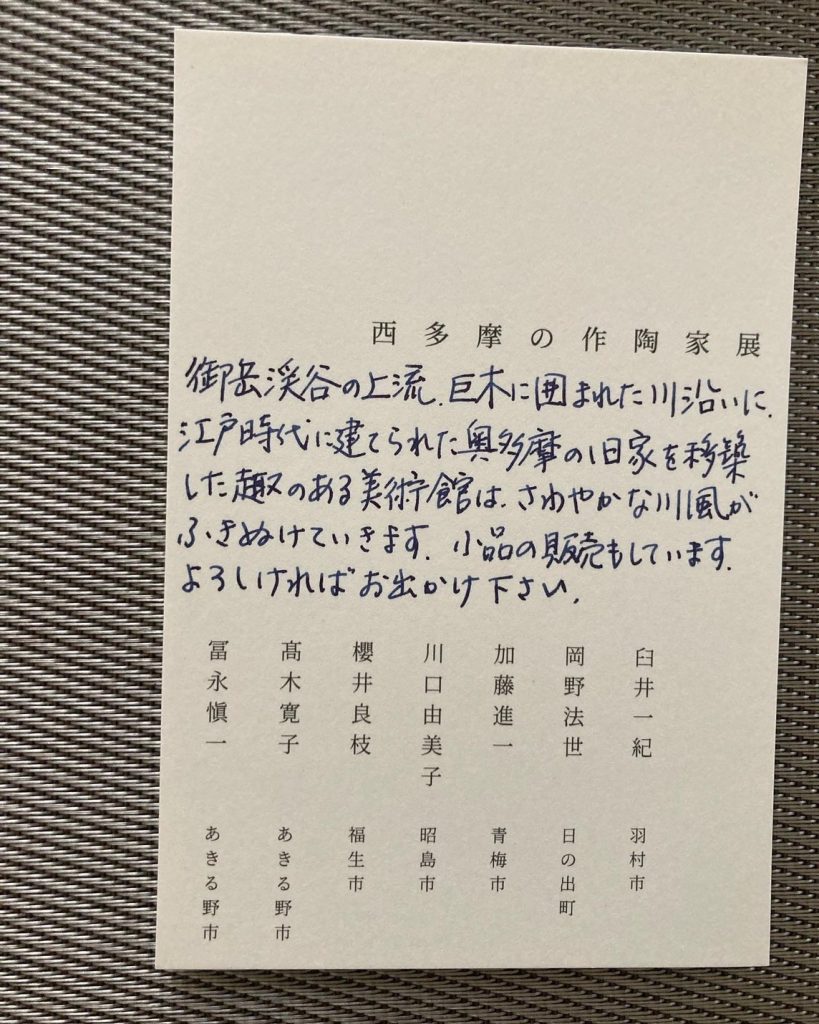 西多摩の作陶家展
御岳渓谷の上流、巨木に囲まれた川沿いに、
江戸時代に建てられた奥多摩の旧家を移築
した趣のある美術館は、さわやかな川風が
ふきぬけていきます。小品の販売もしています。
よろしければお出かけ下さい。
臼井一紀 羽村市
岡野法世 日の出町
加藤進一 青梅市
川口由美子 昭島市
櫻井良枝 福生市
髙木寛子 あきる野市
冨永愼一 あきる野市